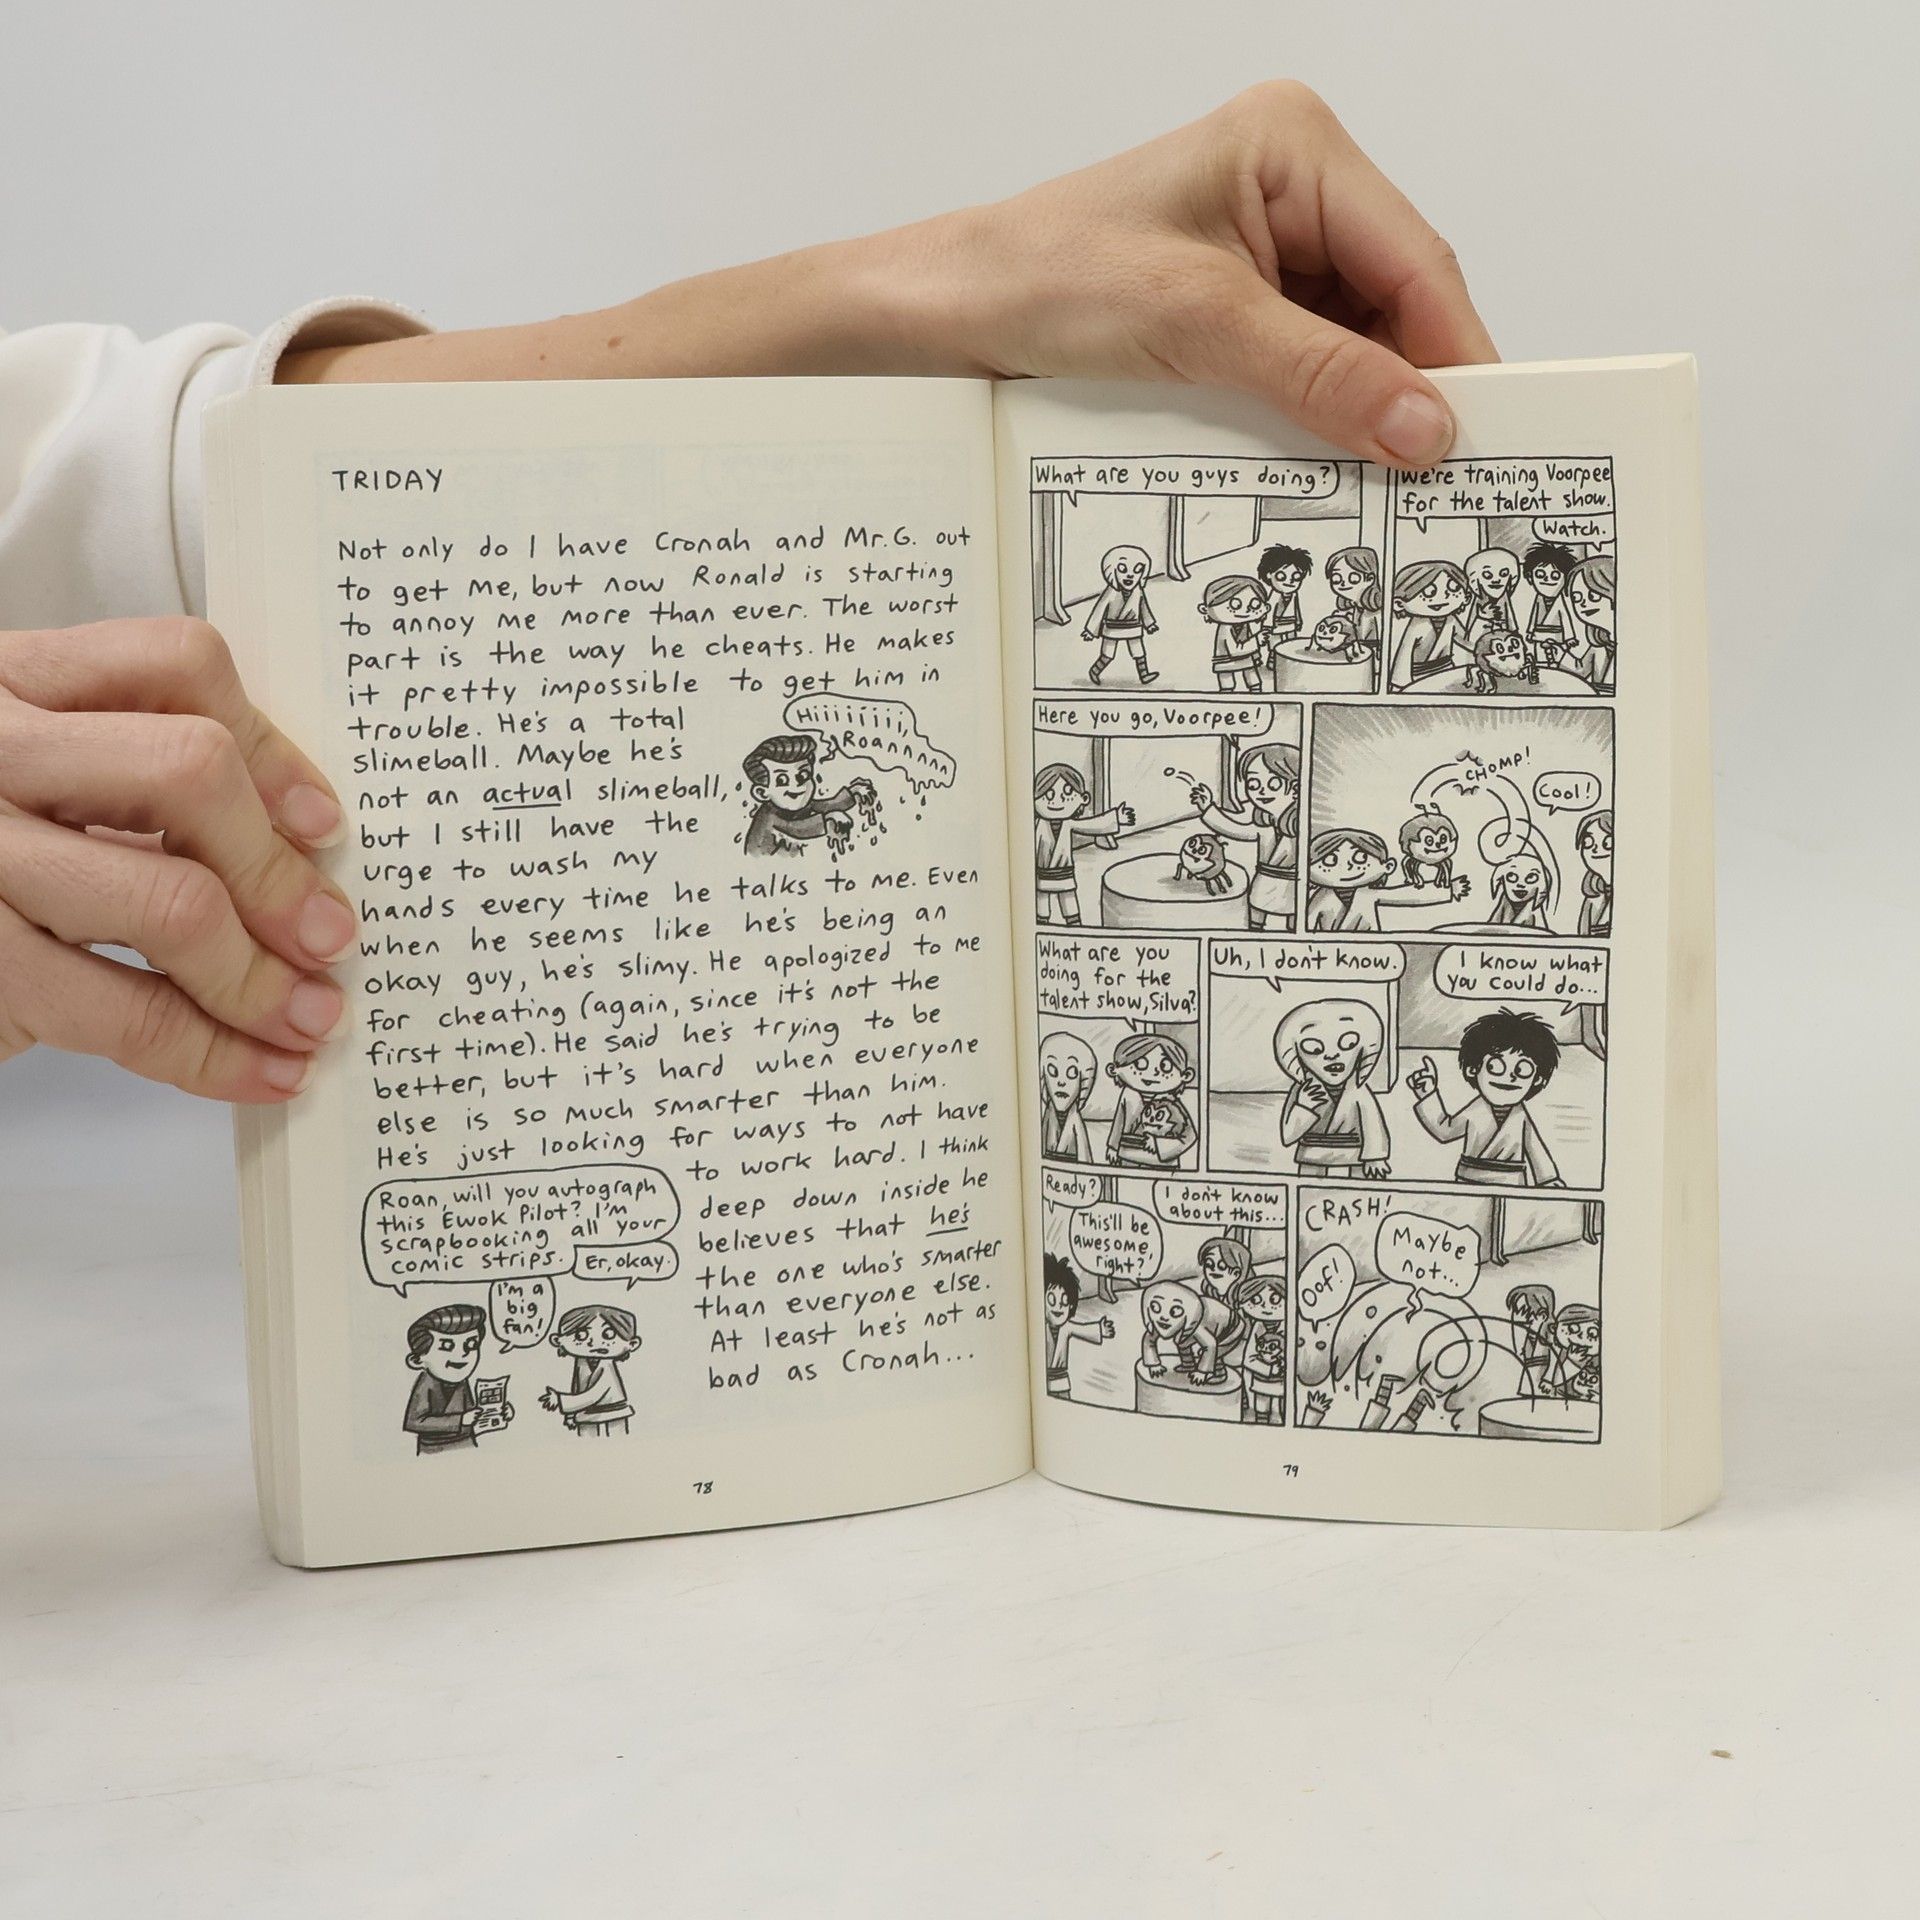 TRIDAY
Not only do I have Cronah and Mr.G. out
to get me, but now Ronald is starting
to annoy me more than ever. The worst
part is the way he cheats. He makes
it pretty impossible to get him in
trouble. He's a total
slimeball. Maybe he's
not an actual slimeball,
but I still have the
urge to wash my
hands every time he talks to me. Even
when he seems like he's being an
okay guy, he's slimy. He apologized to me
for cheating (again, since it's not the
first time). He said he's trying to be
better, but it's hard when everyone
else is so much smarter than him.
He's just looking for ways to not have
to work hard. I think
deep down inside he
believes that he's
the one who's smarter
than everyone else.
At least he's not as
bad as Cronah...
Hiiiiiiii,
Roannnnn
Roan, will you autograph
this Ewok Pilot? I'm
scrapbooking all your
comic strips.
Er, okay.
I'm a
big
fan!
78
What are you guys doing?
We're training Voorpee
for the talent show.
Watch.
Here you go, Voorpee!
CHOMP!
Cool!
What are you
doing for the
talent show, Silva?
Uh, I don't know.
I know what
you could do...
Ready?
This'll be
awesome,
right?
I don't know
about this...
CRASH!
Oof!
Maybe
not...
79